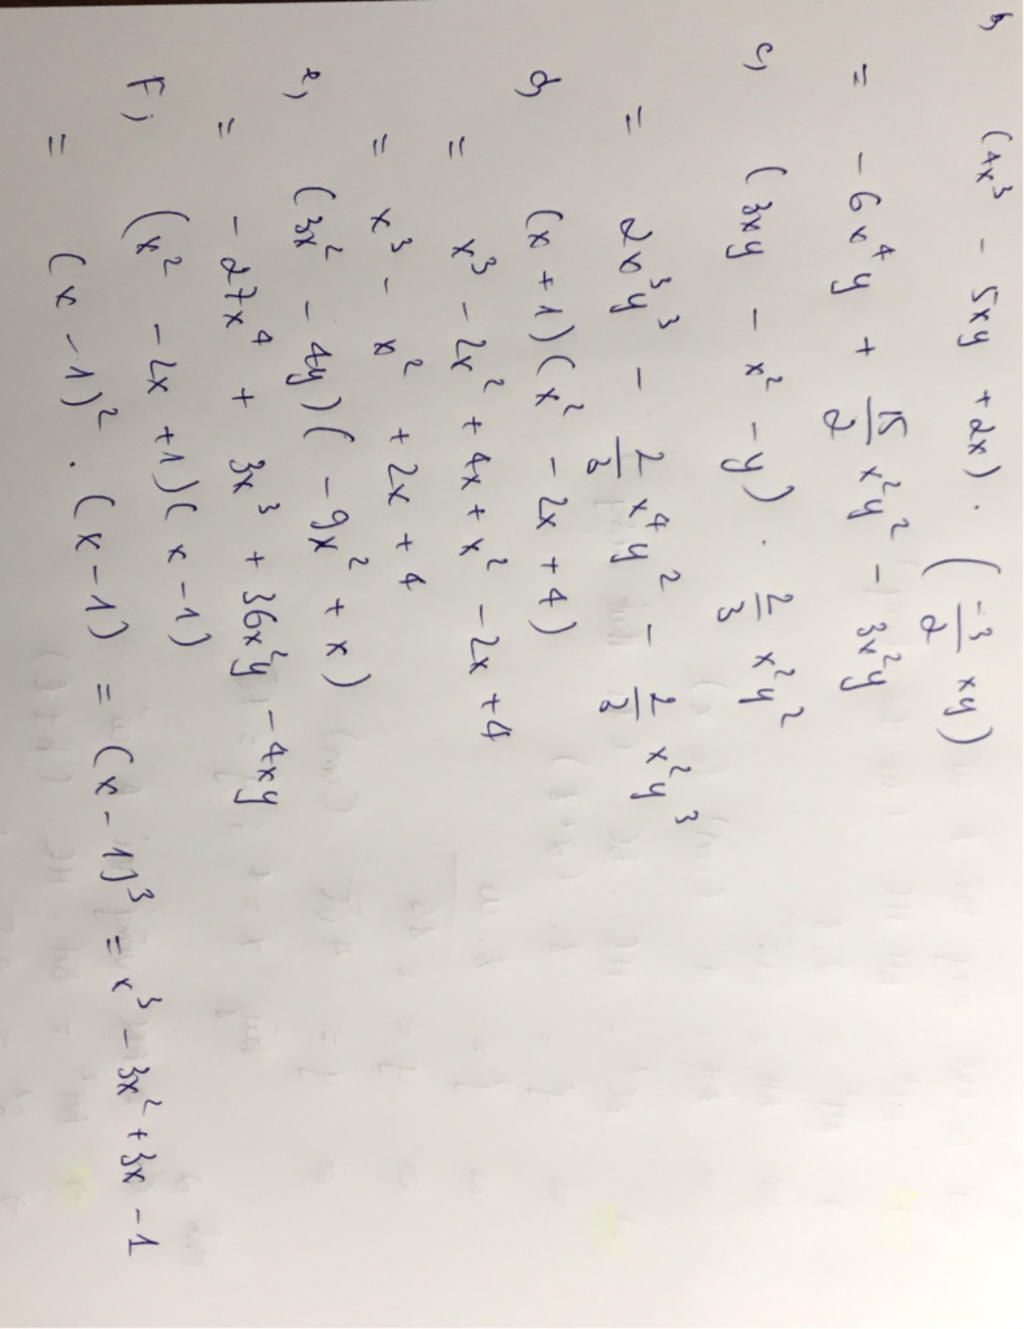 b, (4x³ - 5xy + 2x) . (-3/2 xy)
= - 6x⁴y + 15/2 x²y² - 3x²y
c, (3xy - x² - y) . 2/3 x²y²
= 2x³y³ - 2/3 x⁴y² - 2/3 x²y³
d, (x + 1)(x² - 2x + 4)
= x³ - 2x² + 4x + x² - 2x + 4
= x³ - x² + 2x + 4
e, (3x² - 4y)(- 9x² + x)
= - 27x⁴ + 3x³ + 36x²y - 4xy
F, (x² - 2x + 1)(x - 1)
= (x - 1)² . (x - 1) = (x - 1)³ = x³ - 3x² + 3x - 1